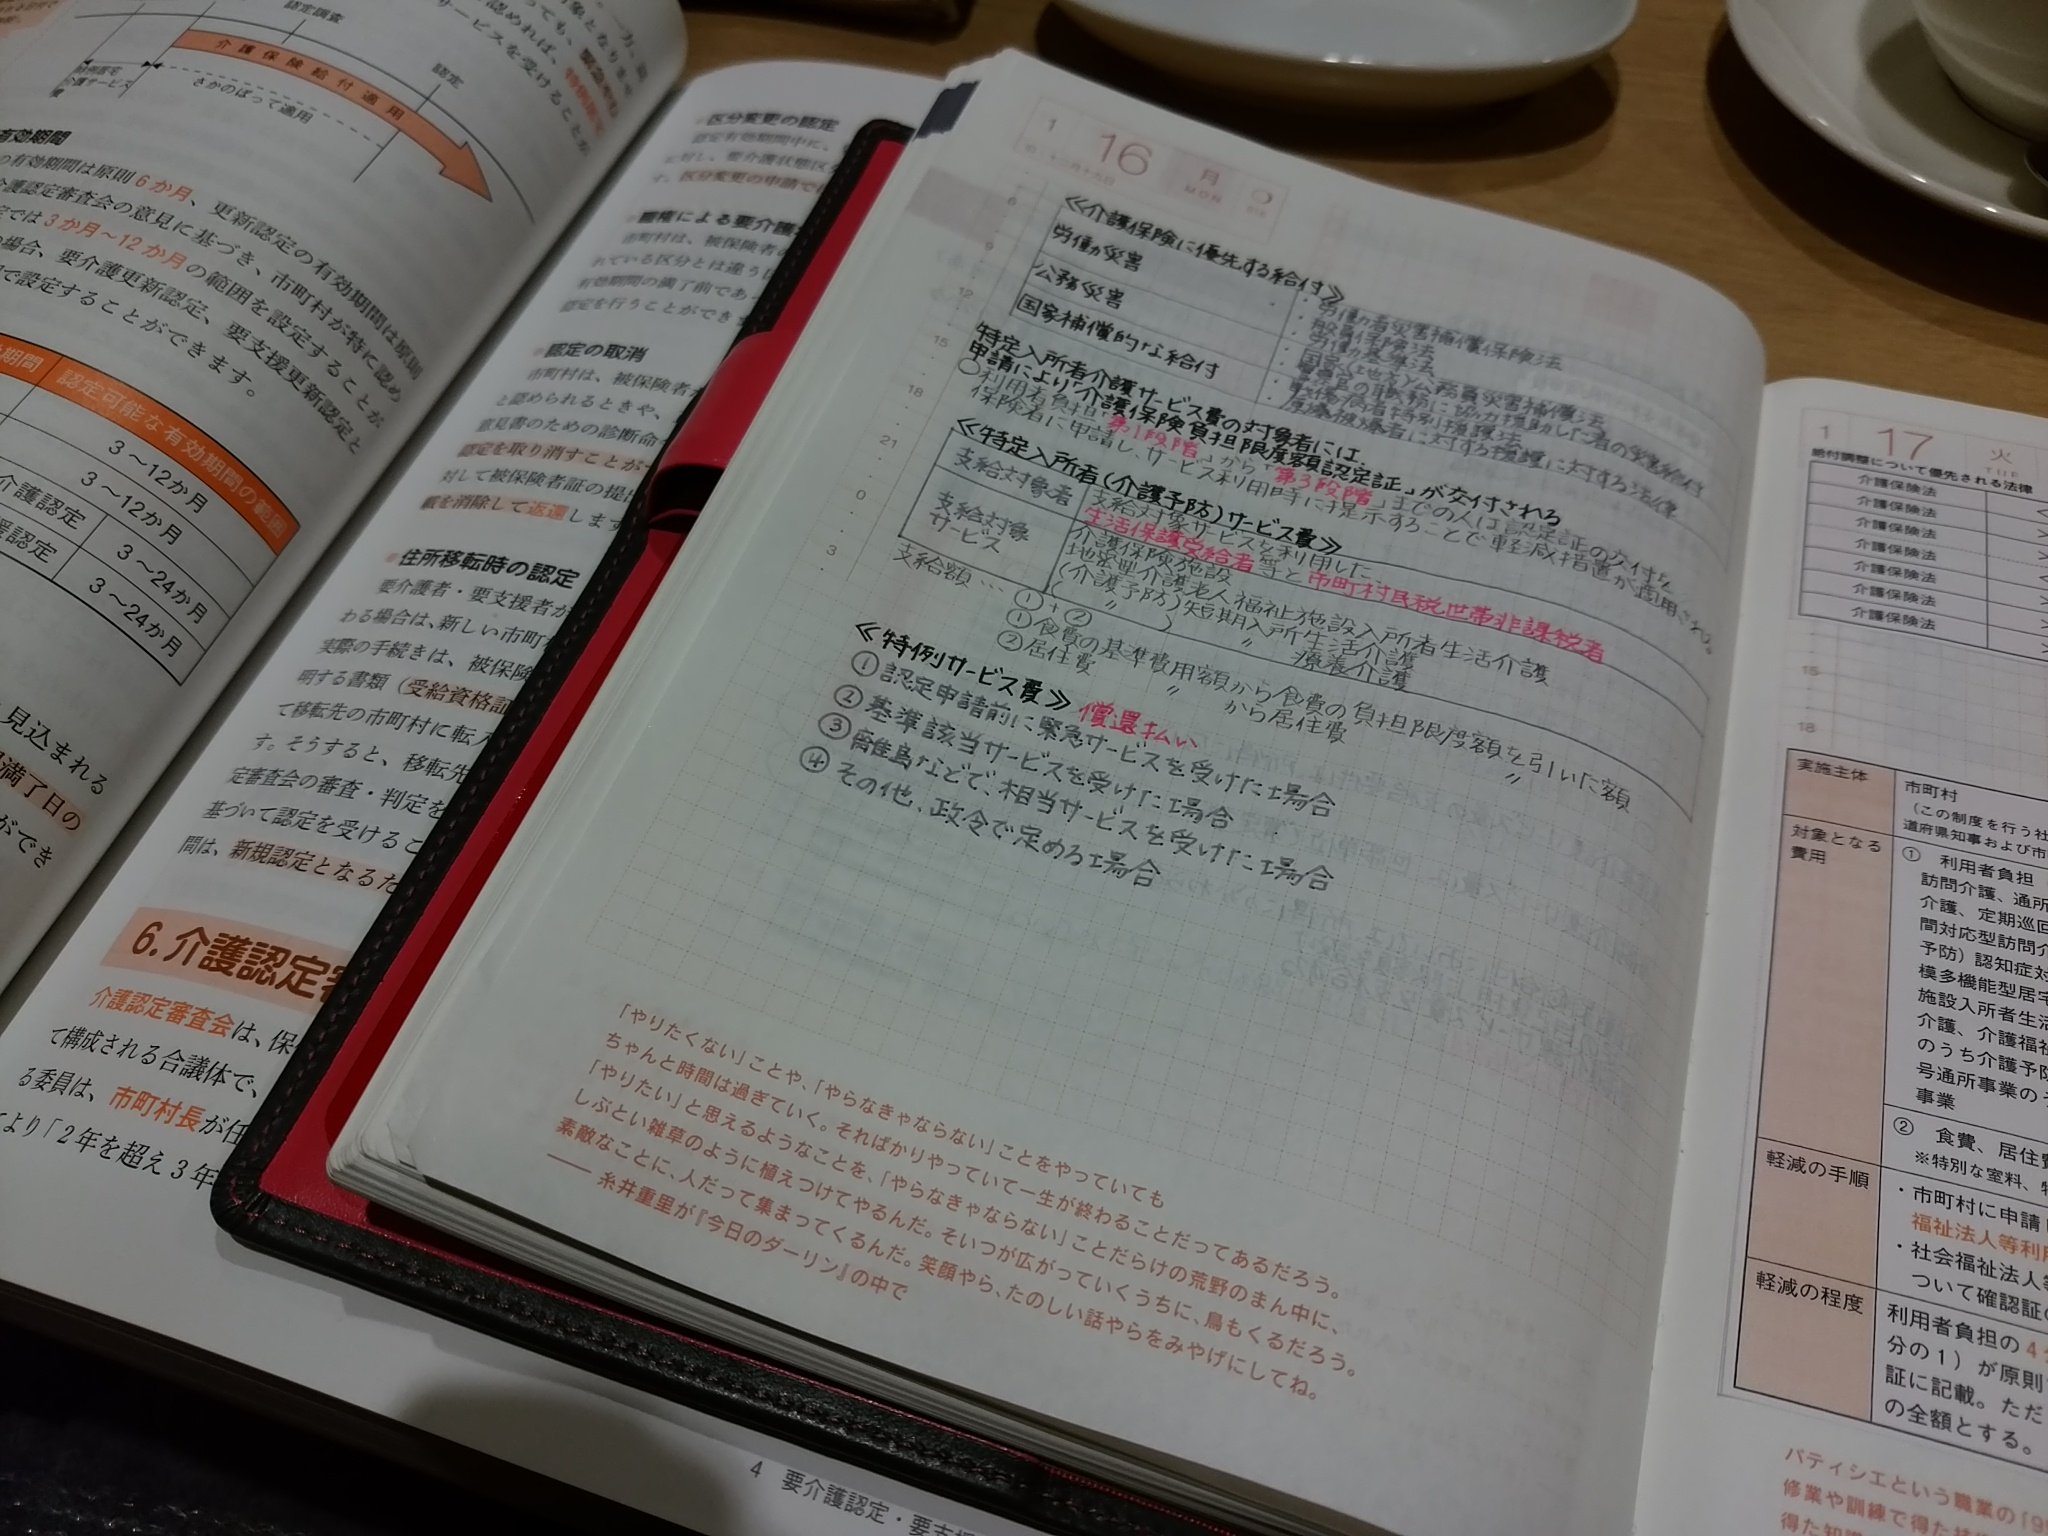 認定調査
介護保険給付適用
認定
さかのぼって適用
介護サービス
有効期間
の有効期間は原則6か月、更新認定の有効期間は原則
介護認定審査会の意見に基づき、市町村が特に認め
では3か月～12か月の範囲を設定することが
の場合、要介護更新認定、要支援更新認定と
で設定することができます。
期間
認定可能な有効期間の範囲
3～12か月
3～12か月
介護認定
3～24か月
援認定
3～24か月
見込まれる
満了日の
ができ
区分変更の認定
認定有効期間中に、
に対し、要介護状態区
す。区分変更の申請では
職権による要介護
市町村は、被保険者の
れている区分とは違う
有効期間の満了前であ
認定を行うことができ
認定の取消
市町村は、被保険者が
と認められるときや、
意見書のための診断命
認定を取り消すことが
対して被保険者証の提出
載を消除して返還します
住所移転時の認定
要介護者・要支援者が
わる場合は、新しい市町
実際の手続きは、被保険
明する書類（受給資格証
て移転先の市町村に転入
す。そうすると、移転先
定審査会の審査・判定を
基づいて認定を受けるこ
間は、新規認定となるた
6.介護認定審
介護認定審査会は、保
て構成される合議体で、
る委員は、市町村長が任
より「2年を超え3年
4 要介護認定・要支援
1 16 月
MON
≪介護保険に優先する給付≫
労働災害
・労働者災害補償保険法
・船員保険法
・労働基準法
公務災害
・国家(地方)公務員災害補償法
国家補償的な給付
特定入所者介護サービス費の対象者には、
申請により「介護保険負担限度額認定証」が交付される
○利用者負担「第1段階」から「第3段階」までの人は認定証の交付を
保険者に申請し、サービス利用時に提示することで軽減措置が適用される。
≪特定入所者(介護予防)サービス費≫
支給対象者
支給対象サービスを利用した
生活保護受給者等と市町村民税世帯非課税者
支給対象
サービス
介護保険施設
地密型介護老人福祉施設入所者生活介護
(介護予防)短期入所生活介護
( 〃 ) 〃 療養介護
支給額… ①+②
①食費の基準費用額から食費の負担限度額を引いた額
②居住費 〃 から居住費 〃
≪特例サービス費≫ 償還払い
①認定申請前に緊急サービスを受けた場合
②基準該当サービスを受けた場合
③離島などで、相当サービスを受けた場合
④その他、政令で定める場合
9
12
15
18
21
0
3
「やりたくない」ことや、「やらなきゃならない」ことをやっていても
ちゃんと時間は過ぎていく。そればかりやっていて一生が終わることだってあるだろう。
「やりたい」と思えるようなことを、「やらなきゃならない」ことだらけの荒野のまん中に、
しぶとい雑草のように植えつけてやるんだ。そいつが広がっていくうちに、鳥もくるだろう。
素敵なことに、人だって集まってくるんだ。笑顔やら、たのしい話やらをみやげにしてね。
――糸井重里が『今日のダーリン』の中で
1 17 火
TUE
給付調整について優先される法律
介護保険法
介護保険法
介護保険法
介護保険法
介護保険法
介護保険法
15
18
実施主体
市町村
（この制度を行う社
道府県知事および市
対象となる
費用
① 利用者負担
訪問介護、通所
介護、定期巡回
間対応型訪問介
予防）認知症対
模多機能型居宅
施設入所者生活
介護、介護福祉
のうち介護予防
号通所事業のそ
事業
② 食費、居住費
※特別な室料、特
軽減の手順
・市町村に申請
福祉法人等利用
・社会福祉法人等
ついて確認証の
軽減の程度
利用者負担の4
分の1）が原則
証に記載。ただ
の全額とする。
パティシエという職業の「9
修業や訓練で得た
得た知識